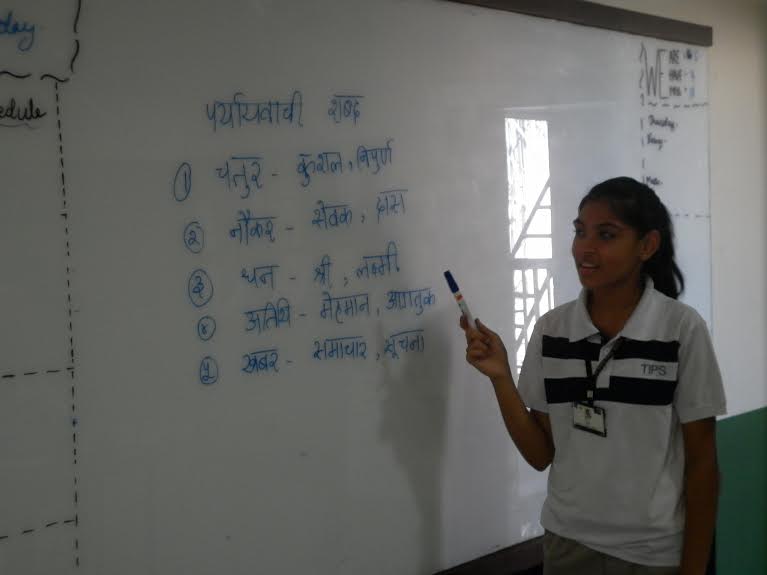 day
edule
पर्यायवाची शब्द
① चतुर - कुशल, निपुर्ण
② नौकर - सेवक, दास
③ धन - श्री, लक्ष्मी
④ अतिथि - मेहमान, आगतुक
⑤ खबर - समाचार, सूचना
WE ARE
HAVE
Thursday
TIPS